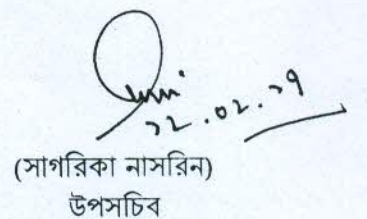 ২২.০২.২৭
(সাগরিকা নাসরিন)
উপসচিব